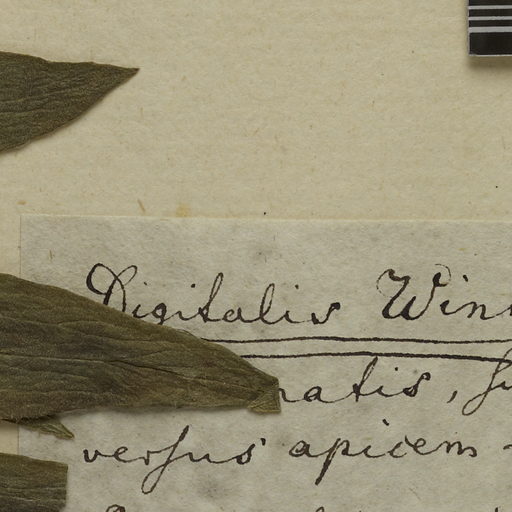 Digitalis Win
natis, 
versus apicem